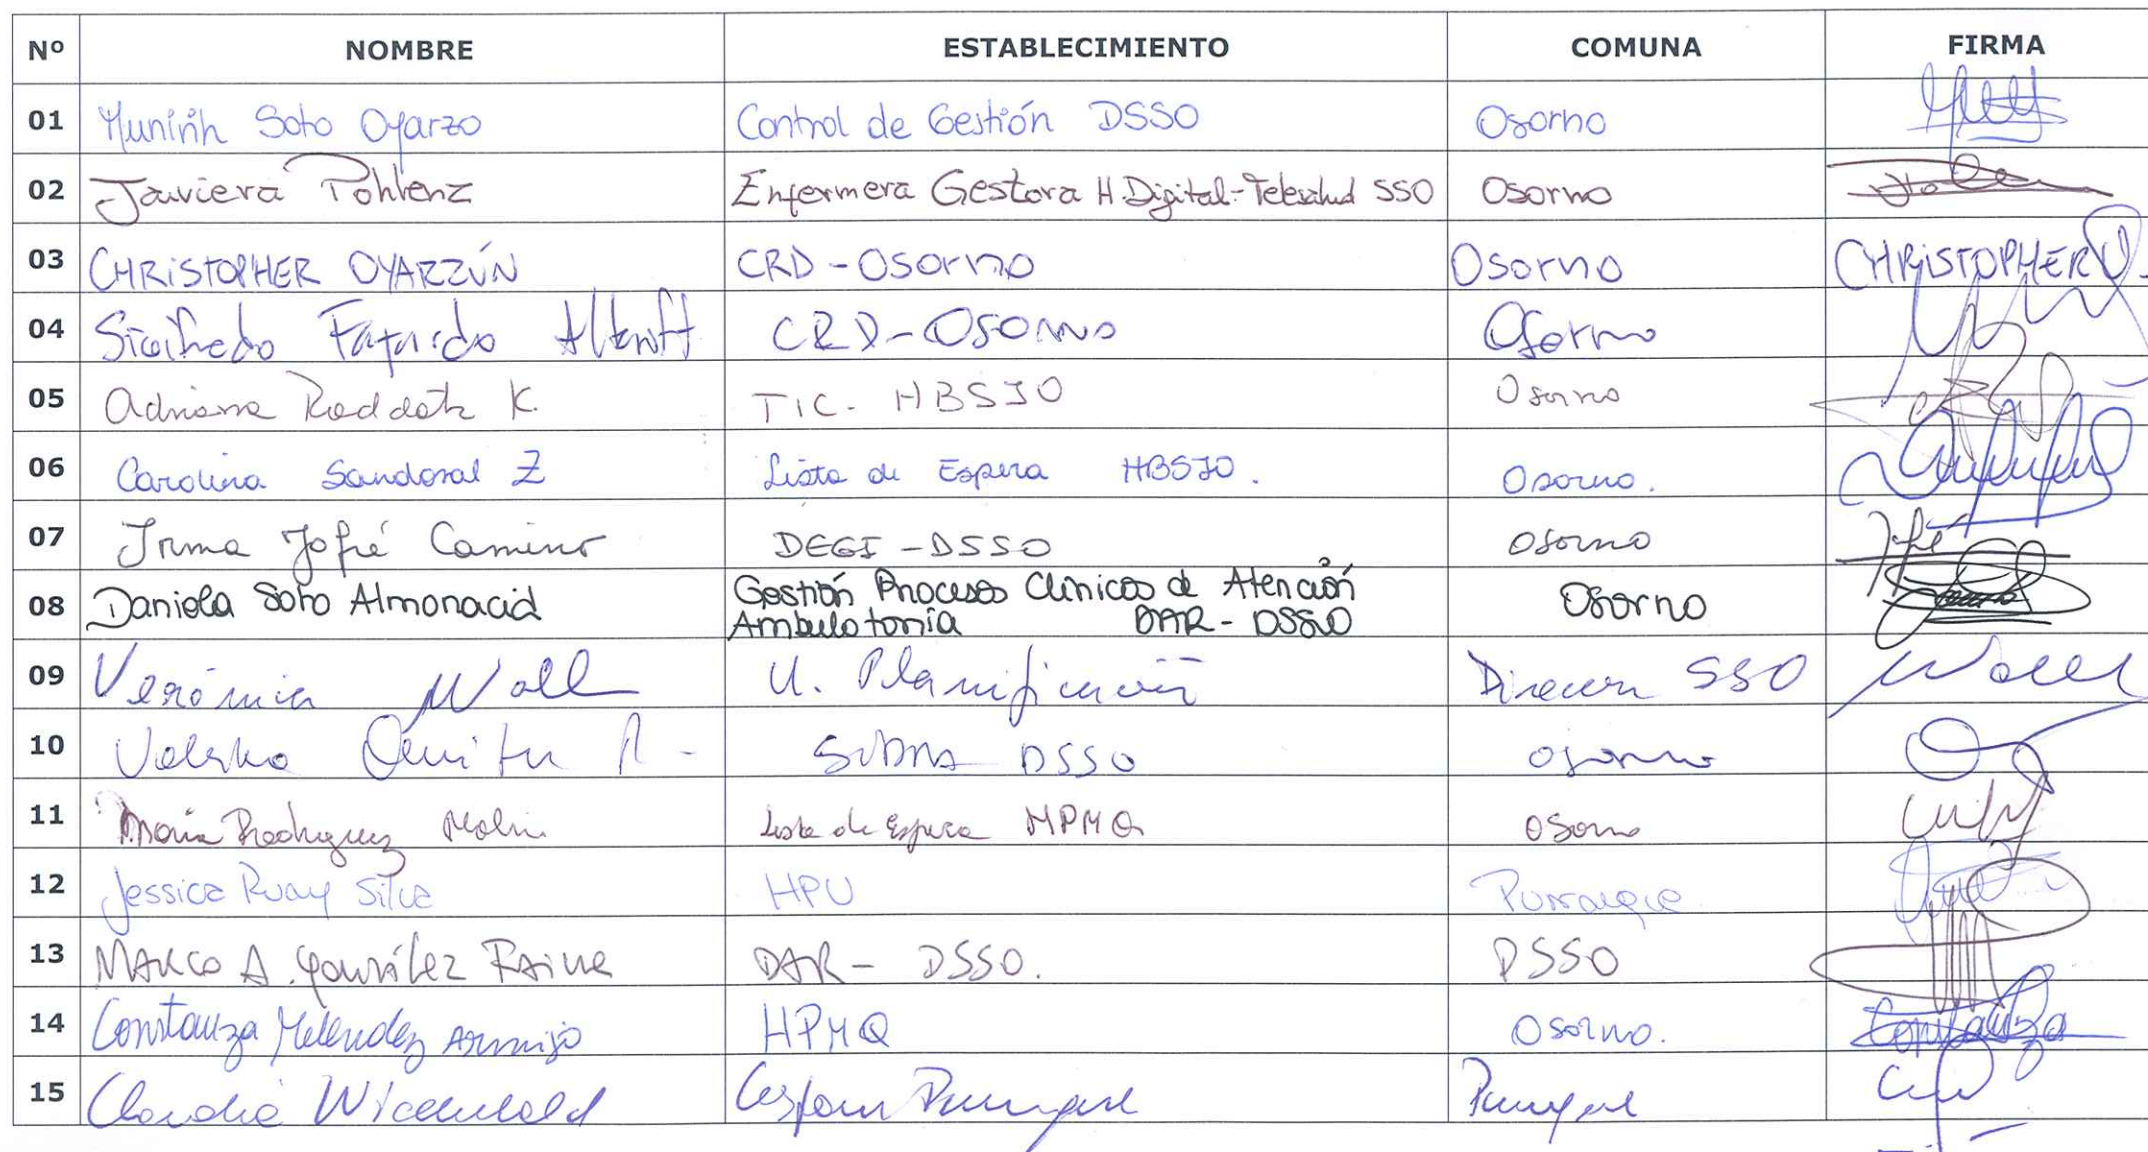 Nº NOMBRE ESTABLECIMIENTO COMUNA FIRMA
01 Munirih Soto Oyarzo Control de Gestión DSSO Osorno
02 Javiera Pohlenz Enfermera Gestora H.Digital-Telesalud SSO Osorno
03 CHRISTOPHER OYARZÚN CRD-Osorno Osorno CHRISTOPHER
04 Fajardo CRD-Osorno Osorno
05 Adriana Raddatz K. TIC. HBSJO Osorno
06 Carolina Sandoval Z Lista de Espera HBSJO. Osorno.
07 Irma Jofré Camino DEGI-DSSO Osorno Jofré
08 Daniela Soto Almonacid Gestión Procesos Clínicos de Atención
Ambulatoria DAR-DSSO Osorno
09 Verónica Wall U. Planificación Direccion SSO Wall
10 Valeska R- DSSO Osorno
11 María Rodriguez Molin Lista de Espera HPMQ Osorno
12 Jessica Ruay Silva HPU Purranque
13 MARCO A. González DAR- DSSO. DSSO
14 Constanza Melendez Armijo HPMQ Osorno. Constanza
15 Claudia Cesfam Purranque Purranque